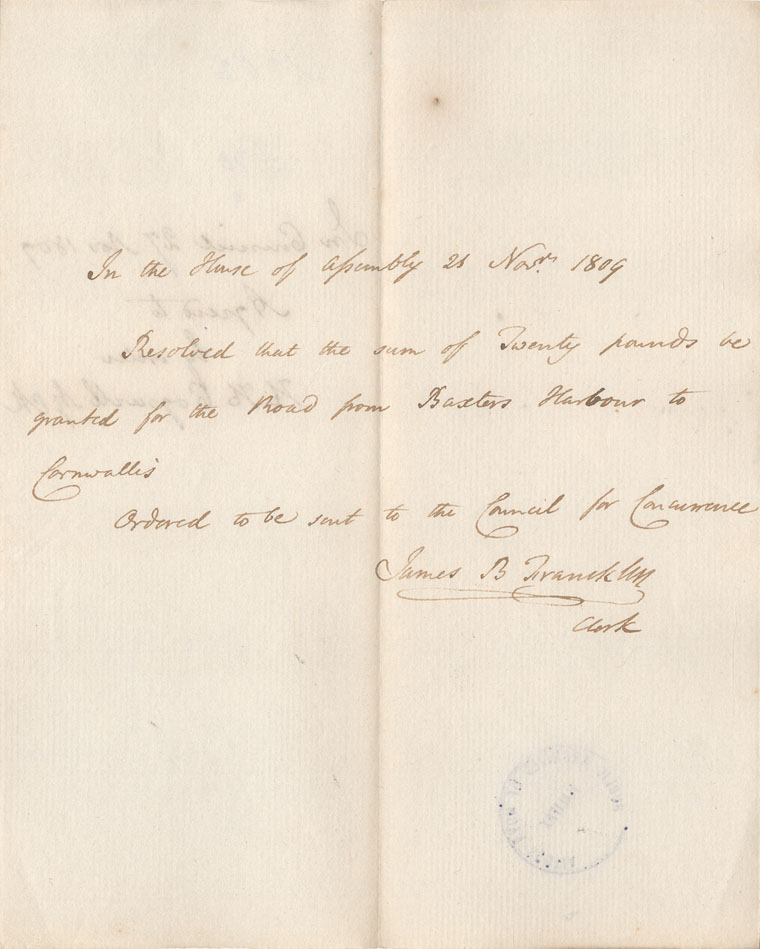 In the House of Assembly 28 Novr. 1809
Resolved that the sum of Twenty pounds be
granted for the Road from Baxters Harbour to
Cornwallis
Ordered to be sent to the Council for Concurrence
James B Francklin
Clerk